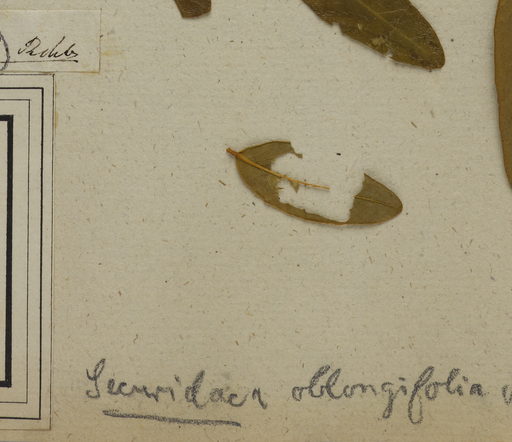 Securidaca oblongifolia